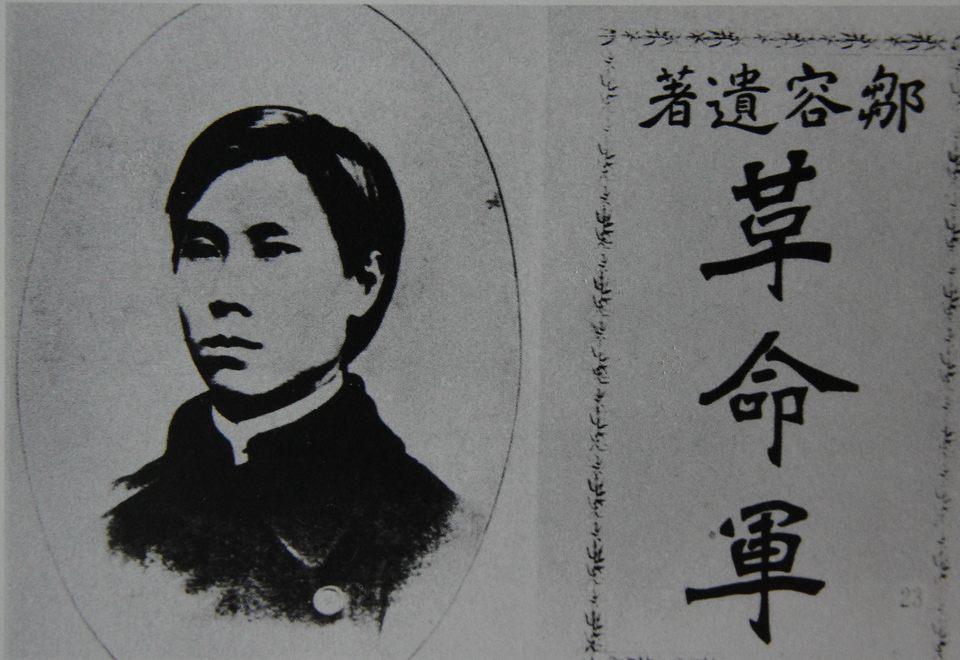 鄒容遺著
革命軍
23